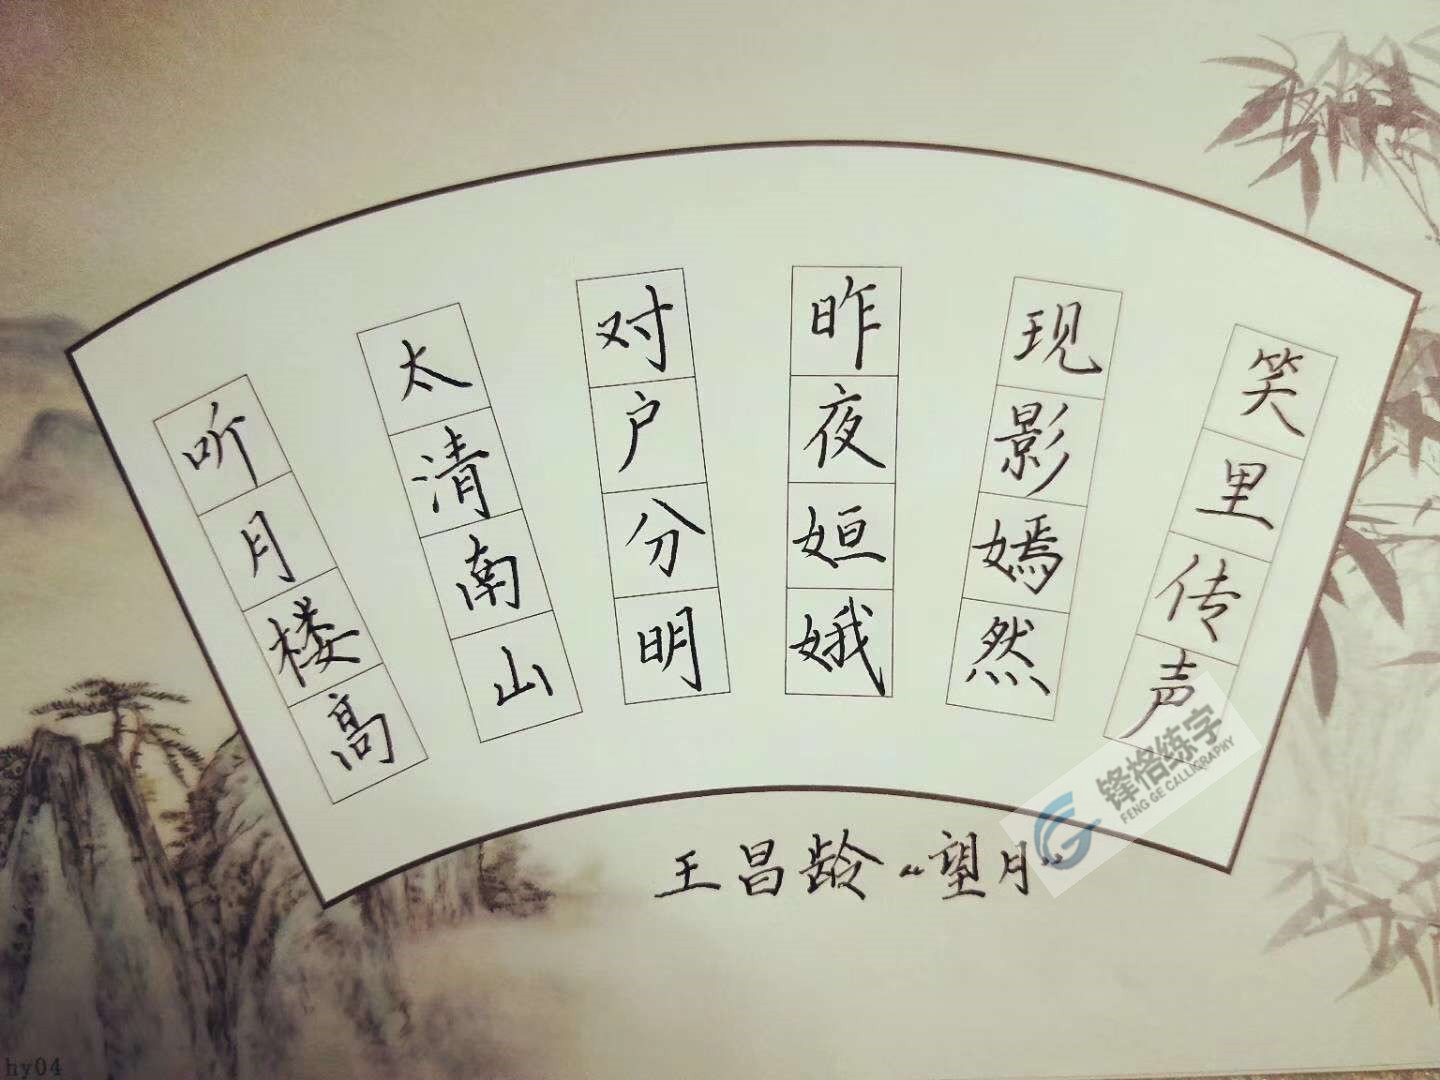 听月楼高
太清南山
对户分明
昨夜姮娥
现影嫣然
笑里传声
王昌龄“望月”
锋格练字
FENG GE CALLIGRAPHY
hy04